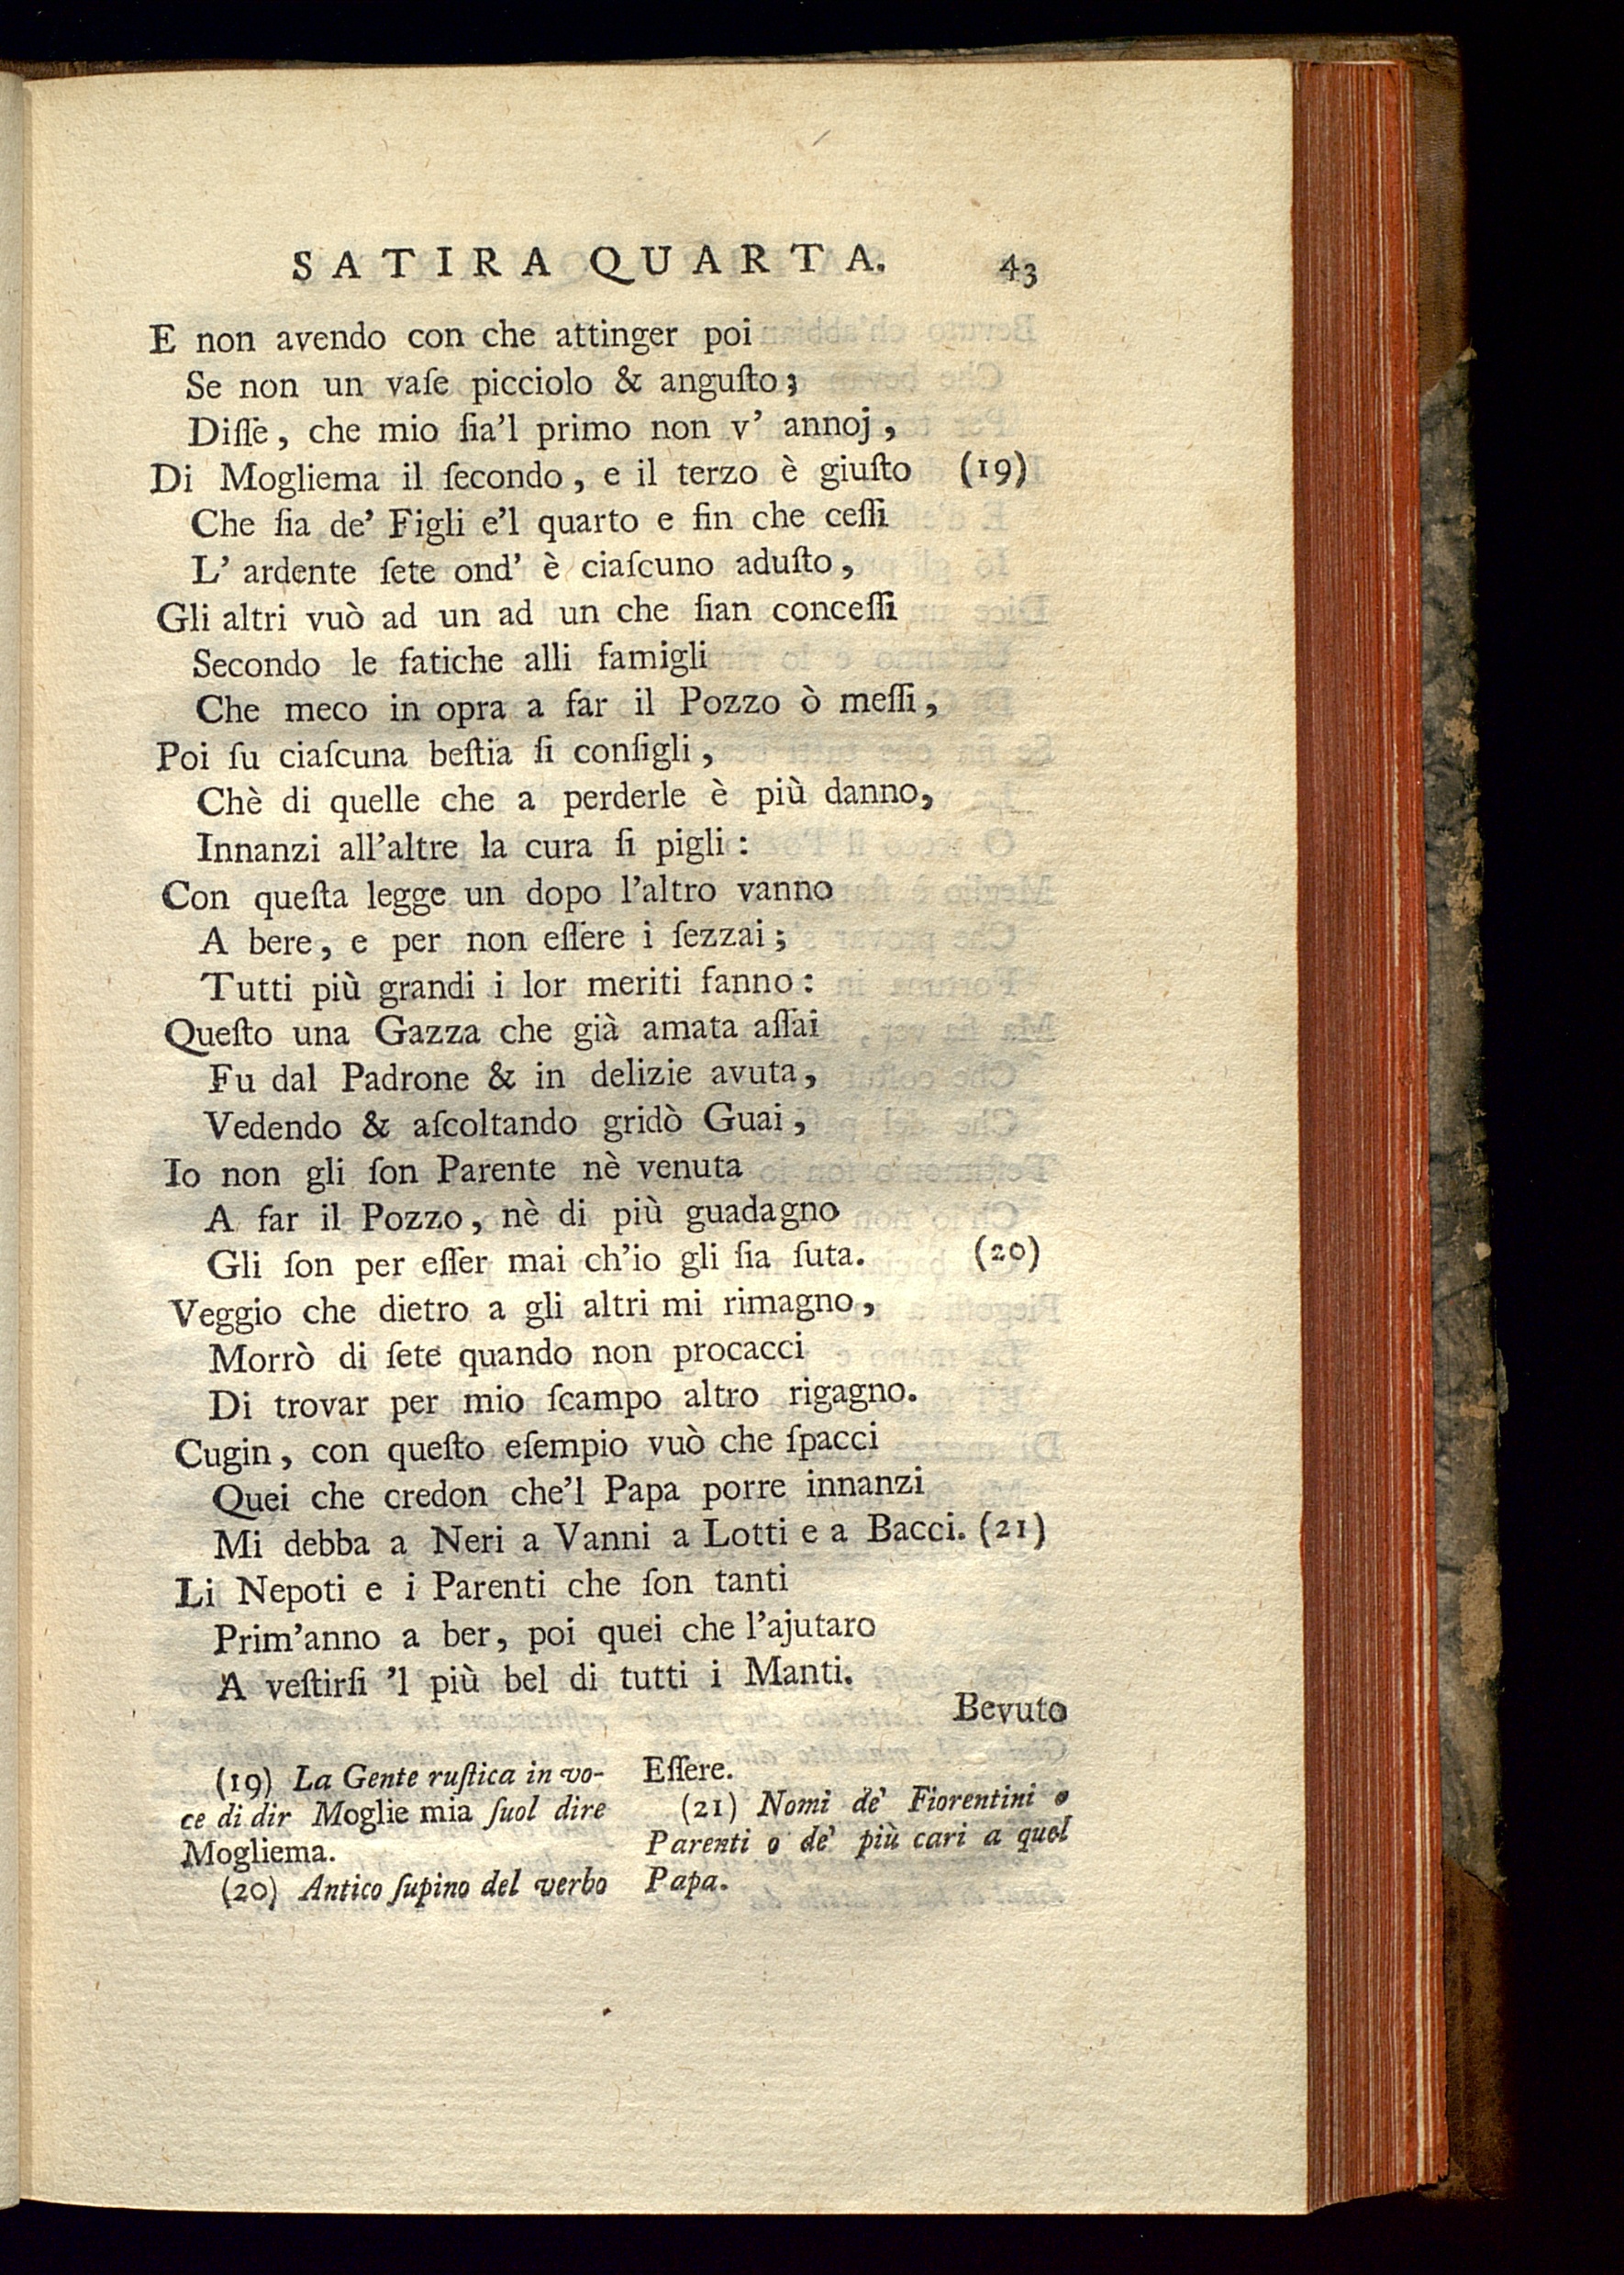 SATIRA QUARTA. 43
E non avendo con che attinger poi
Se non un vaſe picciolo & anguſto;
Diſſe, che mio ſia'l primo non v' annoj,
Di Mogliema il ſecondo, e il terzo è giuſto (19)
Che ſia de' Figli e'l quarto e fin che ceſſi
L' ardente ſete ond' è ciaſcuno aduſto,
Gli altri vuò ad un ad un che ſian conceſſi
Secondo le fatiche alli famigli
Che meco in opra a far il Pozzo ò meſſi,
Poi ſu ciaſcuna beſtia ſi conſigli,
Chè di quelle che a perderle è più danno,
Innanzi all'altre la cura ſi pigli:
Con queſta legge un dopo l'altro vanno
A bere, e per non eſſere i ſezzai;
Tutti più grandi i lor meriti fanno:
Queſto una Gazza che già amata aſſai
Fu dal Padrone & in delizie avuta,
Vedendo & aſcoltando gridò Guai,
Io non gli ſon Parente nè venuta
A far il Pozzo, nè di più guadagno
Gli ſon per eſſer mai ch'io gli ſia ſuta. (20)
Veggio che dietro a gli altri mi rimagno,
Morrò di ſete quando non procacci
Di trovar per mio ſcampo altro rigagno.
Cugin, con queſto eſempio vuò che ſpacci
Quei che credon che'l Papa porre innanzi
Mi debba a Neri a Vanni a Lotti e a Bacci. (21)
Li Nepoti e i Parenti che ſon tanti
Prim'anno a ber, poi quei che l'ajutaro
A veſtirſi 'l più bel di tutti i Manti.
Bevuto
(19) La Gente ruſtica in vo-
ce di dir Moglie mia ſuol dire
Mogliema.
(20) Antico ſupino del verbo
Eſſere.
(21) Nomi de' Fiorentini o
Parenti o de' più cari a quel
Papa.